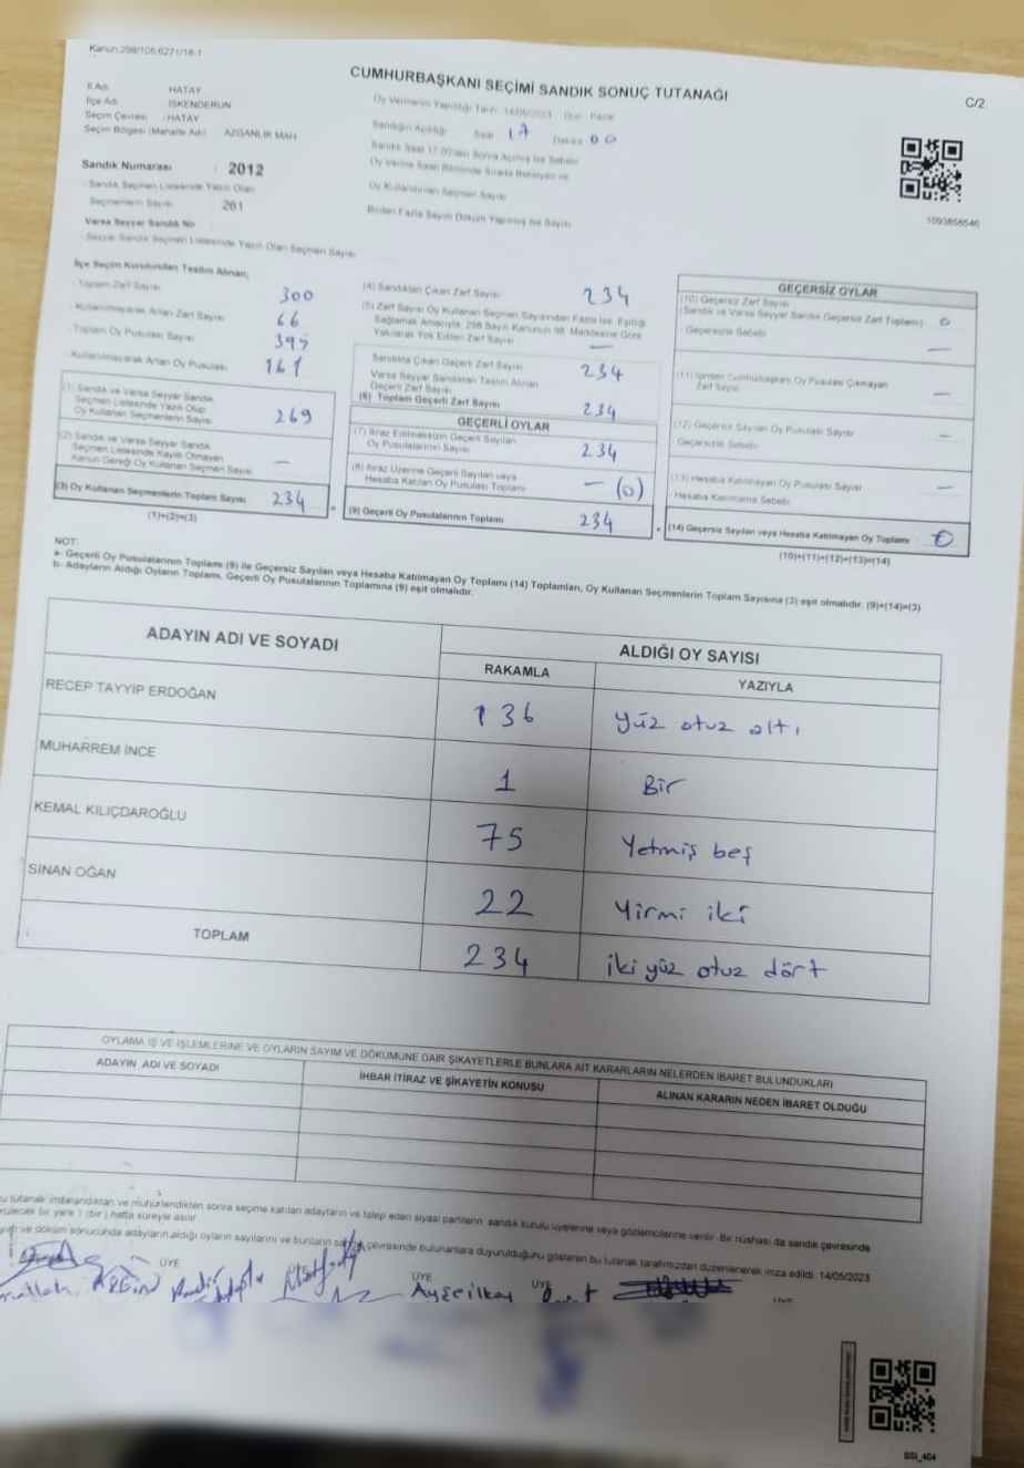 Kanun:298/105;6271/18-1
CUMHURBAŞKANI SEÇİMİ SANDIK SONUÇ TUTANAĞI
C/2
İl Adı : HATAY
İlçe Adı : İSKENDERUN
Seçim Çevresi : HATAY
Seçim Bölgesi (Mahalle Adı) : AZGANLIK MAH
Oy Vermenin Yapıldığı Tarih : 14/05/2023 Gün : Pazar
Sandığın Açıldığı Saat 17 Dakika 00
Sandık Saat 17.00'den Sonra Açılmış İse Sebebi
Oy Kullandırılan Seçmen Sayısı
Birden Fazla Sayım Döküm Yapılmış İse Sayısı
Sandık Numarası : 2012
Sandık Seçmen Listesinde Yazılı Olan
Seçmenlerin Sayısı : 261
Varsa Seyyar Sandık No
Seyyar Sandık Seçmen Listesinde Yazılı Olan Seçmen Sayısı
1093858546
İlçe Seçim Kurulundan Teslim Alınan;
Toplam Zarf Sayısı 300
Kullanılmayarak Artan Zarf Sayısı 66
Toplam Oy Pusulası Sayısı 395
Kullanılmayarak Artan Oy Pusulası 161
(1) Sandık ve Varsa Seyyar Sandık
Seçmen Listesinde Yazılı Olup
Oy Kullanan Seçmenlerin Sayısı 269
(2) Sandık ve Varsa Seyyar Sandık
Seçmen Listesinde Kayıtlı Olmayan
Kanun Gereği Oy Kullanan Seçmen Sayısı —
(3) Oy Kullanan Seçmenlerin Toplam Sayısı 234
(1)+(2)=(3)
(4) Sandıktan Çıkan Zarf Sayısı 234
(5) Zarf Sayısı Oy Kullanan Seçmen Sayısından Fazla İse, Eşitliği
Sağlamak Amacıyla, 298 Sayılı Kanunun 98. Maddesine Göre
Yakılarak Yok Edilen Zarf Sayısı —
Sandıkta Çıkan Geçerli Zarf Sayısı 234
Varsa Seyyar Sandıktan Teslim Alınan
Geçerli Zarf Sayısı
(6) Toplam Geçerli Zarf Sayısı 234
GEÇERLİ OYLAR
(7) İtiraz Edilmeksizin Geçerli Sayılan
Oy Pusulalarının Sayısı 234
(8) İtiraz Üzerine Geçerli Sayılan veya
Hesaba Katılan Oy Pusulası Toplamı — (0)
(9) Geçerli Oy Pusulalarının Toplamı 234
GEÇERSİZ OYLAR
(10) Geçersiz Zarf Sayısı
(Sandık ve Varsa Seyyar Sandık Geçersiz Zarf Toplamı) 0
Geçersizlik Sebebi —
(11) İçinden Cumhurbaşkanı Oy Pusulası Çıkmayan
Zarf Sayısı —
(12) Geçersiz Sayılan Oy Pusulası Sayısı —
Geçersizlik Sebebi
(13) Hesaba Katılmayan Oy Pusulası Sayısı —
Hesaba Katılmama Sebebi
(14) Geçersiz Sayılan veya Hesaba Katılmayan Oy Toplamı 0
(10)+(11)+(12)+(13)=(14)
NOT:
a- Geçerli Oy Pusulalarının Toplamı (9) ile Geçersiz Sayılan veya Hesaba Katılmayan Oy Toplamı (14) Toplamları, Oy Kullanan Seçmenlerin Toplam Sayısına (3) eşit olmalıdır. (9)+(14)=(3)
b- Adayların Aldığı Oyların Toplamı, Geçerli Oy Pusulalarının Toplamına (9) eşit olmalıdır.
ADAYIN ADI VE SOYADI
ALDIĞI OY SAYISI
RAKAMLA YAZIYLA
RECEP TAYYİP ERDOĞAN 136 Yüz otuz altı
MUHARREM İNCE 1 Bir
KEMAL KILIÇDAROĞLU 75 Yetmiş beş
SİNAN OĞAN 22 Yirmi iki
TOPLAM 234 iki yüz otuz dört
OYLAMA İŞ VE İŞLEMLERİNE VE OYLARIN SAYIM VE DÖKÜMÜNE DAİR ŞİKAYETLERLE BUNLARA AİT KARARLARIN NELERDEN İBARET BULUNDUKLARI
ADAYIN ADI VE SOYADI
İHBAR İTİRAZ VE ŞİKAYETİN KONUSU
ALINAN KARARIN NEDEN İBARET OLDUĞU
tutanak imzalandıktan ve mühürlendikten sonra seçime katılan adayların ve talep eden siyasi partilerin sandık kurulu üyelerine veya gözlemcilerine verilir. Bir nüshası da sandık çevresinde
bir yere 1 (bir) hafta süreyle asılır.
ve döküm sonucunda adayların aldığı oyların sayılarını ve bunların sandık çevresinde bulunanlara duyurulduğunu gösteren bu tutanak tarafımızdan düzenlenerek imza edildi. 14/05/2023
ÜYE ÜYE ÜYE
SSİ_404